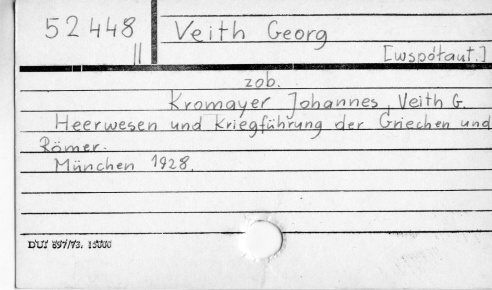 52448 Veith Georg
II [współaut.]
zob.
Kromayer Johannes, Veith G.
Heerwesen und Kriegführung der Griechen und
Römer.
München 1928.